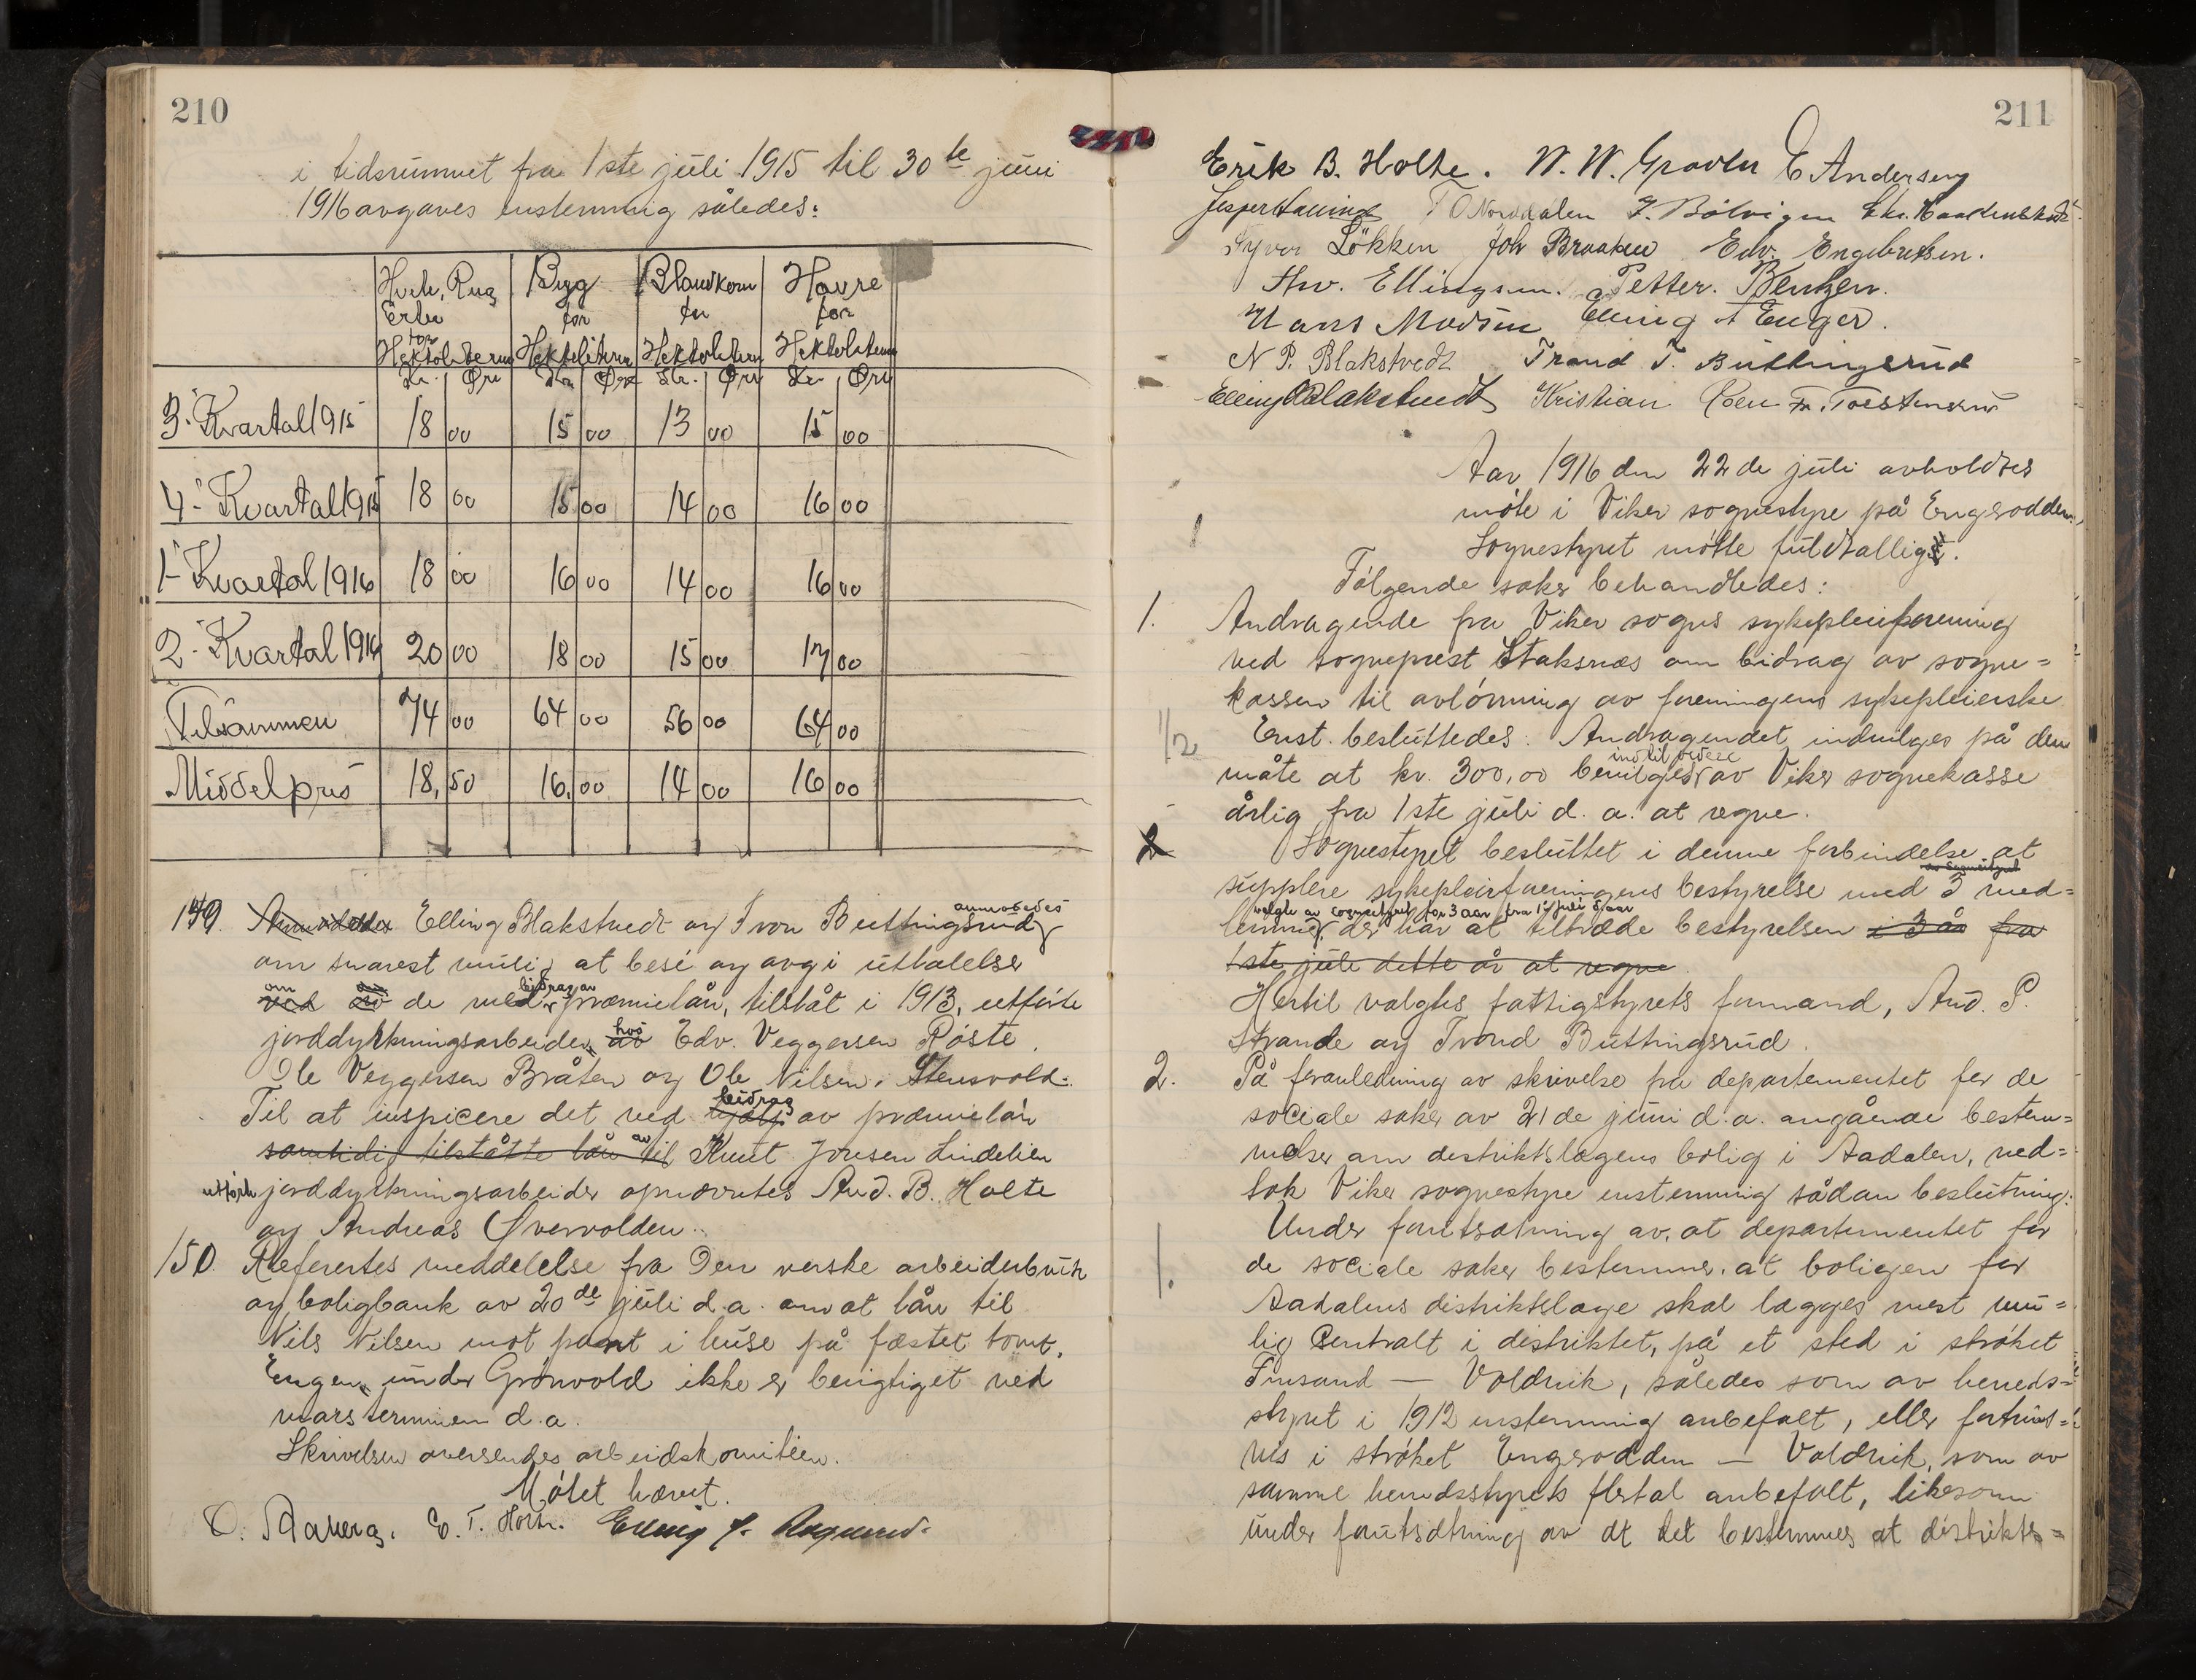 210
i tidsrummet fra 1ste juli 1915 til 30te juni
1916 avgaves enstemmig således:
Hvete, Rug Erter for Hektoliteren | Byg for Hektoliteren | Blandkorn for Hektoliteren | Havre for Hektoliteren
Kr. Øre | Kr. Øre | Kr. Øre | Kr. Øre
3. Kvartal 1915 18 00 15 00 13 00 15 00
4. Kvartal 1915 18 00 15 00 14 00 16 00
1. Kvartal 1916 18 00 16 00 14 00 16 00
2. Kvartal 1916 20 00 18 00 15 00 17 00
Tilsammen 74 00 64 00 56 00 64 00
Middelpris 18,50 16,00 14 00 16 00
149. Elling Blakstvedt og Tron Buttingsrud anmodedes
om snarest mulig at besé og avgi uttalelse
om de ved bidrag av præmielån, tilståt i 1913, utførte
jorddyrkningsarbeider hos Edv. Veggersen Røste,
Ole Veggersen Bråten og Ole Nilsen, Stensvold.
Til at inspicere det ved bidrag av præmielån
samtidig tilståtte lån til av Knut Jonsen Lindelien
utførte jorddyrkningsarbeider opnævntes And. B. Holte
og Andreas Øvervolden.
150. Refereres meddelelse fra Den norske arbeiderbruk
og boligbank av 20de juli d.a. om at lån til
Nils Nilsen mot pant i huse på fæstet tomt,
Engen, under Grønvold ikke er berigtiget ved
marsterminen d.a.
Skrivelsen oversendes arbeidskomitéen.
Møtet hævet.
O. Aaberg. E. T. Holte. Elling
211
Erik B. Holte. N. W. Gravlie E Andersen
T O Norddalen
Syver Løkken Joh Braaten Edv. Engebretsen.
Thv. Ellingsen. Petter. Bentzen.
Hans Modsen Elling A Enger.
N P. Blakstvedt Trond T. Buttingsrud
Elling O Blakstvedt Kristian Roen Fr. Torstensrud
Aar 1916 den 22de juli avholdtes
møte i Viker sognestyre på Engerodden.
Sognestyret møtte fuldtallig.
Følgende saker behandledes:
1. Andragende fra Viker sogns sykepleieforening
ved sogneprest Staksnæs om bidrag av sogne=
kassen til avlønning av foreningens sykepleierske
Enst. besluttedes: Andragendet indvilges på den
måte at kr. 300,00 bevilges indtil videre av Viker sognekasse
årlig fra 1ste juli d. a. at regne.
Sognestyret besluttet i denne forbindelse at
supplere sykepleieforeningens bestyrelse med 3 med=
lemmer, valgte av sognestyret for 3 aar fra 1' juli d/aar der har at tiltræde bestyrelsen i 3 år fra
1ste juli dette år at regne.
Hertil valgtes fattigstyrets formand, And. P.
Strande og Trond Buttingsrud.
2. På foranledning av skrivelse fra departementet for de
sociale saker av 21de juni d.a. angående bestem=
melser om distriktslægens bolig i Aadalen, ved=
tok Viker sognestyre enstemmig sådan beslutning:
Under forutsætning av, at departementet for
de sociale saker bestemmer, at boligen for
Aadalens distriktslæge skal lægges mest mu=
lig centralt i distriktet, på et sted i strøket
Finsand — Voldrik, således som av herreds=
styret i 1912 enstemmig anbefalt, eller fortrins=
vis i strøket Engerodden — Voldrik, som av
samme herredsstyrets flertal anbefalt, likesom
under forutsætning av at det bestemmes at distrikts=